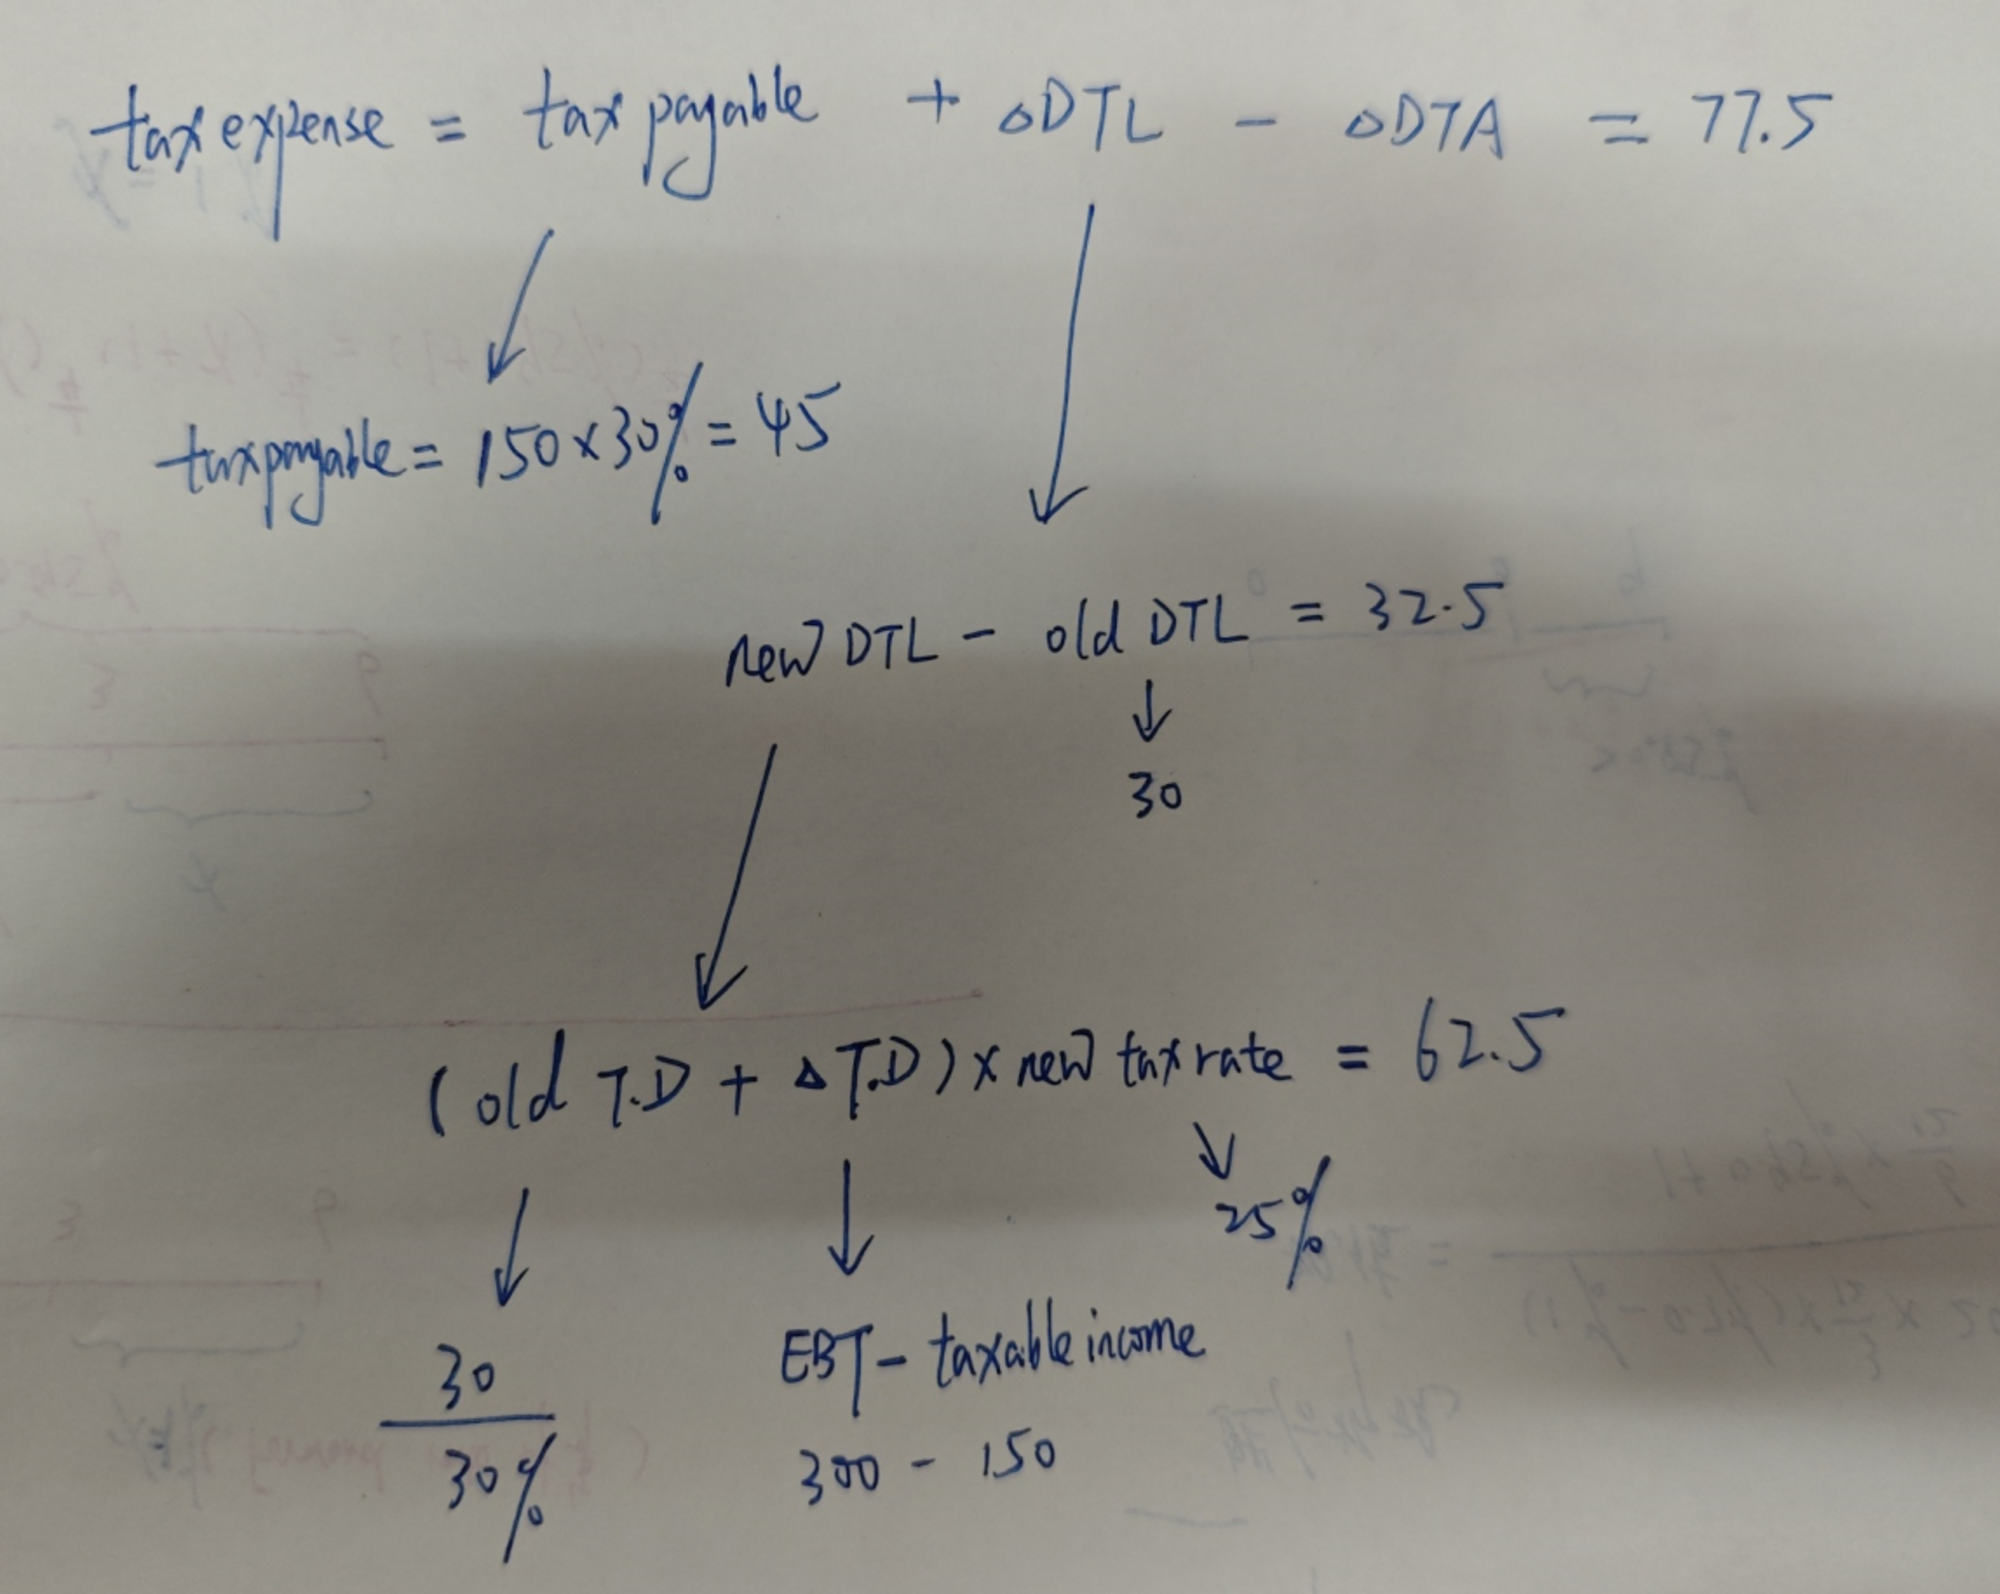 tax expense = tax payable + △DTL - △DTA = 77.5
tax payable = 150 × 30% = 45
new DTL - old DTL = 32.5
30
(old T.D + △T.D) × new tax rate = 62.5
25%
30
30%
EBT - taxable income
300 - 150